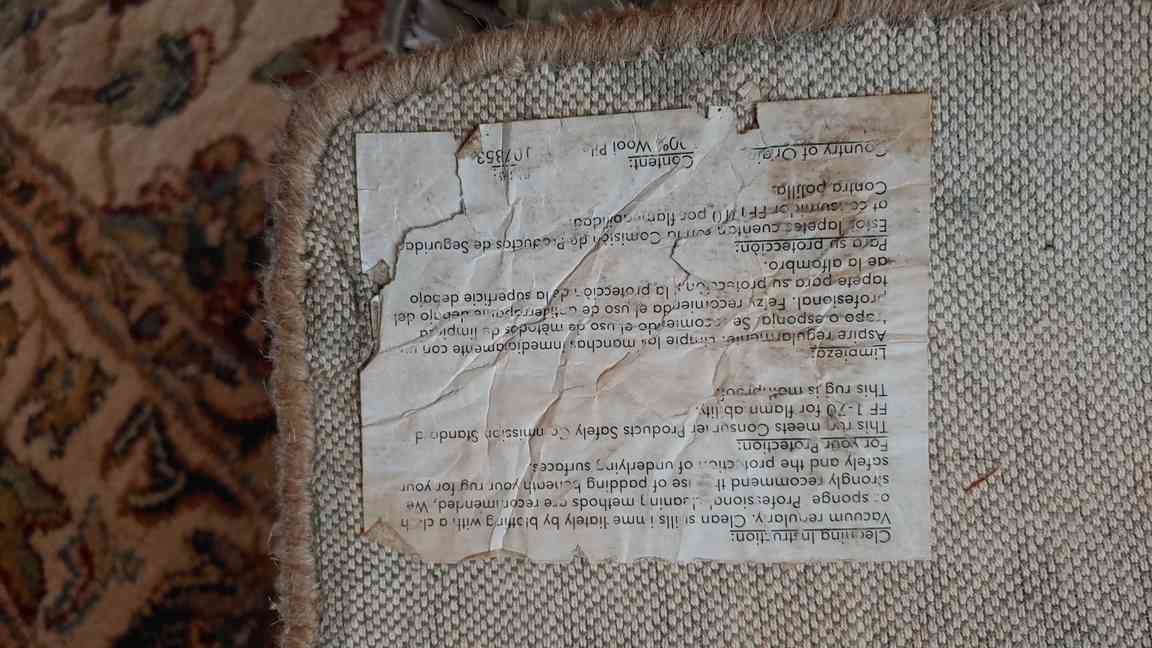 Cleaning Instruction:
Vacuum regularly. Clean spills immediately by blotting with a cloth
or sponge. Professional cleaning methods are recommended, We
strongly recommend the use of padding beneath your rug for your
safely and the protection of underlying surfaces.
For your Protection:
This rug meets Consumer Products Safely Commission Standard
FF 1-70 for flammability.
This rug is mothproof.
Limpieza:
Aspire regularmente. Limpie las manchas inmediatamente con un
trapo o esponja. Se recomienda el uso de métodos de limpieza
profesional. Feizy recomienda el uso de antiderrapante debajo del
tapete para su protección y la protección de la superficie debajo
de la alfombra.
Para su protección:
Estos Tapetes cuentan con la Comisión de Productos de Seguridad
al consumidor FF 1-70 por flamabilidad.
Contra polilla.
Country of Origin
Content:
Wool Pile